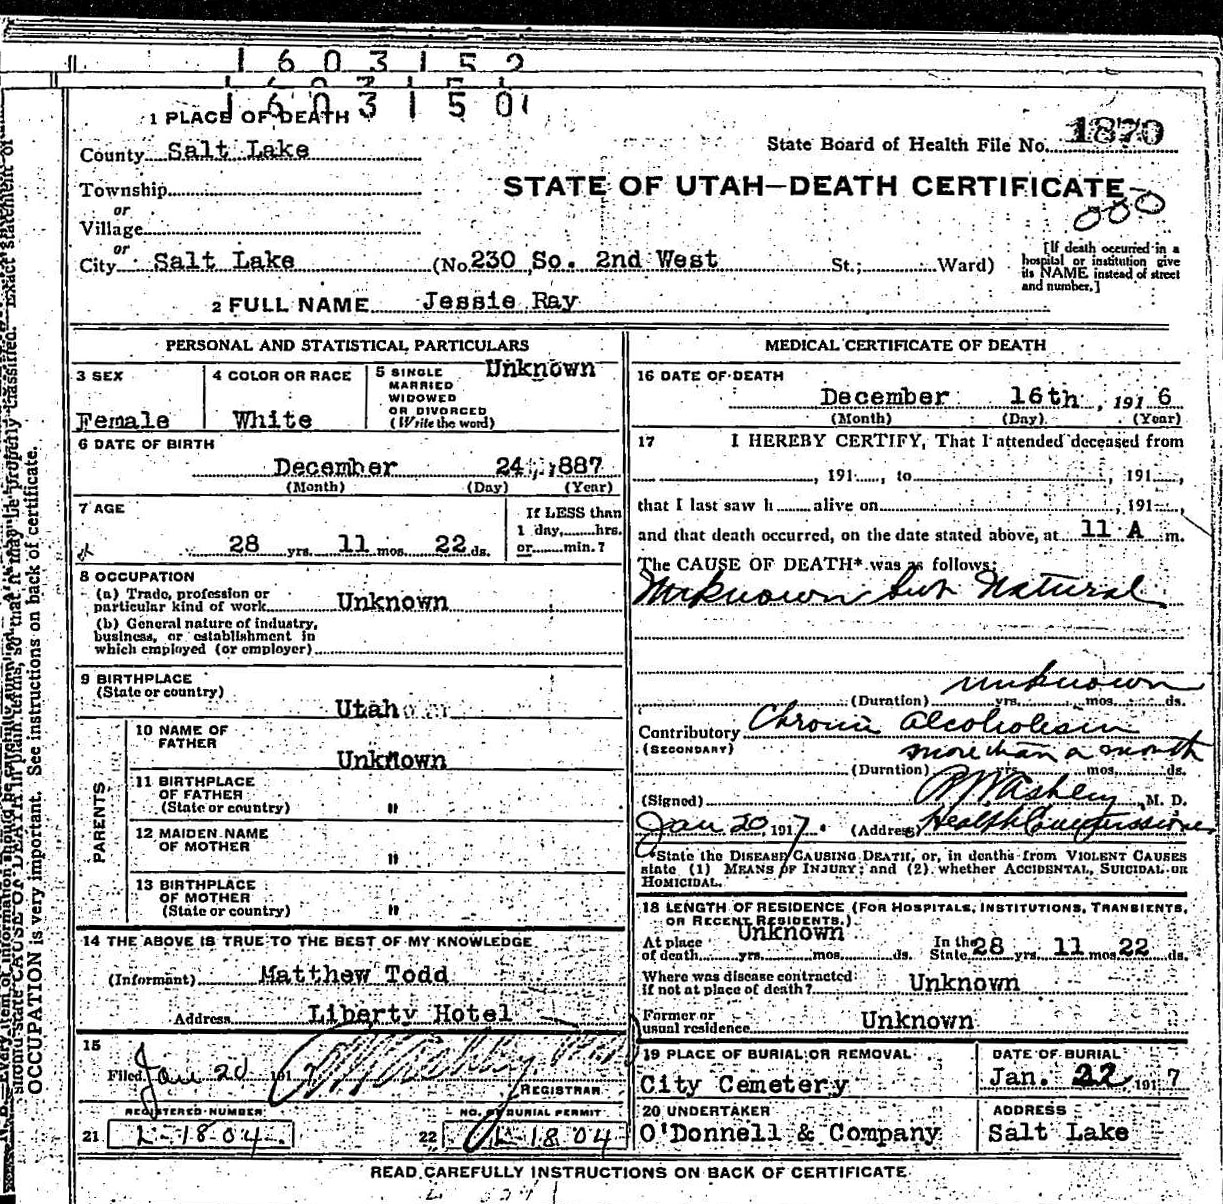 1 6 0 3 1 5 2
1 6 0 3 1 5 0 1
1 PLACE OF DEATH
State Board of Health File No. 1870
County Salt Lake
Township
STATE OF UTAH—DEATH CERTIFICATE
or
000
Village
or
City Salt Lake (No. 230 So. 2nd West St.; Ward)
[If death occurred in a
hospital or institution give
its NAME instead of street
and number.]
2 FULL NAME Jessie Ray
PERSONAL AND STATISTICAL PARTICULARS
3 SEX
Female
4 COLOR OR RACE
White
5 SINGLE
MARRIED
WIDOWED
OR DIVORCED
(Write the word)
Unknown
6 DATE OF BIRTH
December 24, 1887
(Month) (Day) (Year)
7 AGE
28 yrs. 11 mos. 22 ds.
If LESS than
1 day, hrs.
or min.?
8 OCCUPATION
(a) Trade, profession or
particular kind of work Unknown
(b) General nature of industry,
business, or establishment in
which employed (or employer)
9 BIRTHPLACE
(State or country)
Utah
PARENTS
10 NAME OF
FATHER
Unknown
11 BIRTHPLACE
OF FATHER
(State or country) "
12 MAIDEN NAME
OF MOTHER
"
13 BIRTHPLACE
OF MOTHER
(State or country) "
14 THE ABOVE IS TRUE TO THE BEST OF MY KNOWLEDGE
(Informant) Matthew Todd
Address Liberty Hotel
15
Filed Jan 20 191
REGISTRAR
REGISTERED NUMBER
21 L-1804.
NO. OF BURIAL PERMIT
22 L 1804
MEDICAL CERTIFICATE OF DEATH
16 DATE OF DEATH
December 16th, 1916
(Month) (Day) (Year)
17 I HEREBY CERTIFY, That I attended deceased from
, 191 , to , 191 ,
that I last saw h alive on , 191 ,
and that death occurred, on the date stated above, at 11 A m.
The CAUSE OF DEATH* was as follows:
Unknown but Natural
unknown
(Duration) yrs. mos. ds.
Contributory Chronic alcoholism
(SECONDARY)
more than a month
(Duration) yrs. mos. ds.
(Signed) M. D.
Jan 20, 1917. (Address) Health Commissioner
*State the DISEASE CAUSING DEATH, or, in deaths from VIOLENT CAUSES
state (1) MEANS OF INJURY; and (2) whether ACCIDENTAL, SUICIDAL OR
HOMICIDAL.
18 LENGTH OF RESIDENCE (FOR HOSPITALS, INSTITUTIONS, TRANSIENTS,
OR RECENT RESIDENTS.)
Unknown
At place
of death yrs. mos. ds.
In the
State 28 yrs. 11 mos. 22 ds.
Where was disease contracted
if not at place of death? Unknown
Former or
usual residence Unknown
19 PLACE OF BURIAL OR REMOVAL
City Cemetery
DATE OF BURIAL
Jan. 22 1917
20 UNDERTAKER
O'Donnell & Company
ADDRESS
Salt Lake
READ CAREFULLY INSTRUCTIONS ON BACK OF CERTIFICATE
OCCUPATION is very important. See instructions on back of certificate.